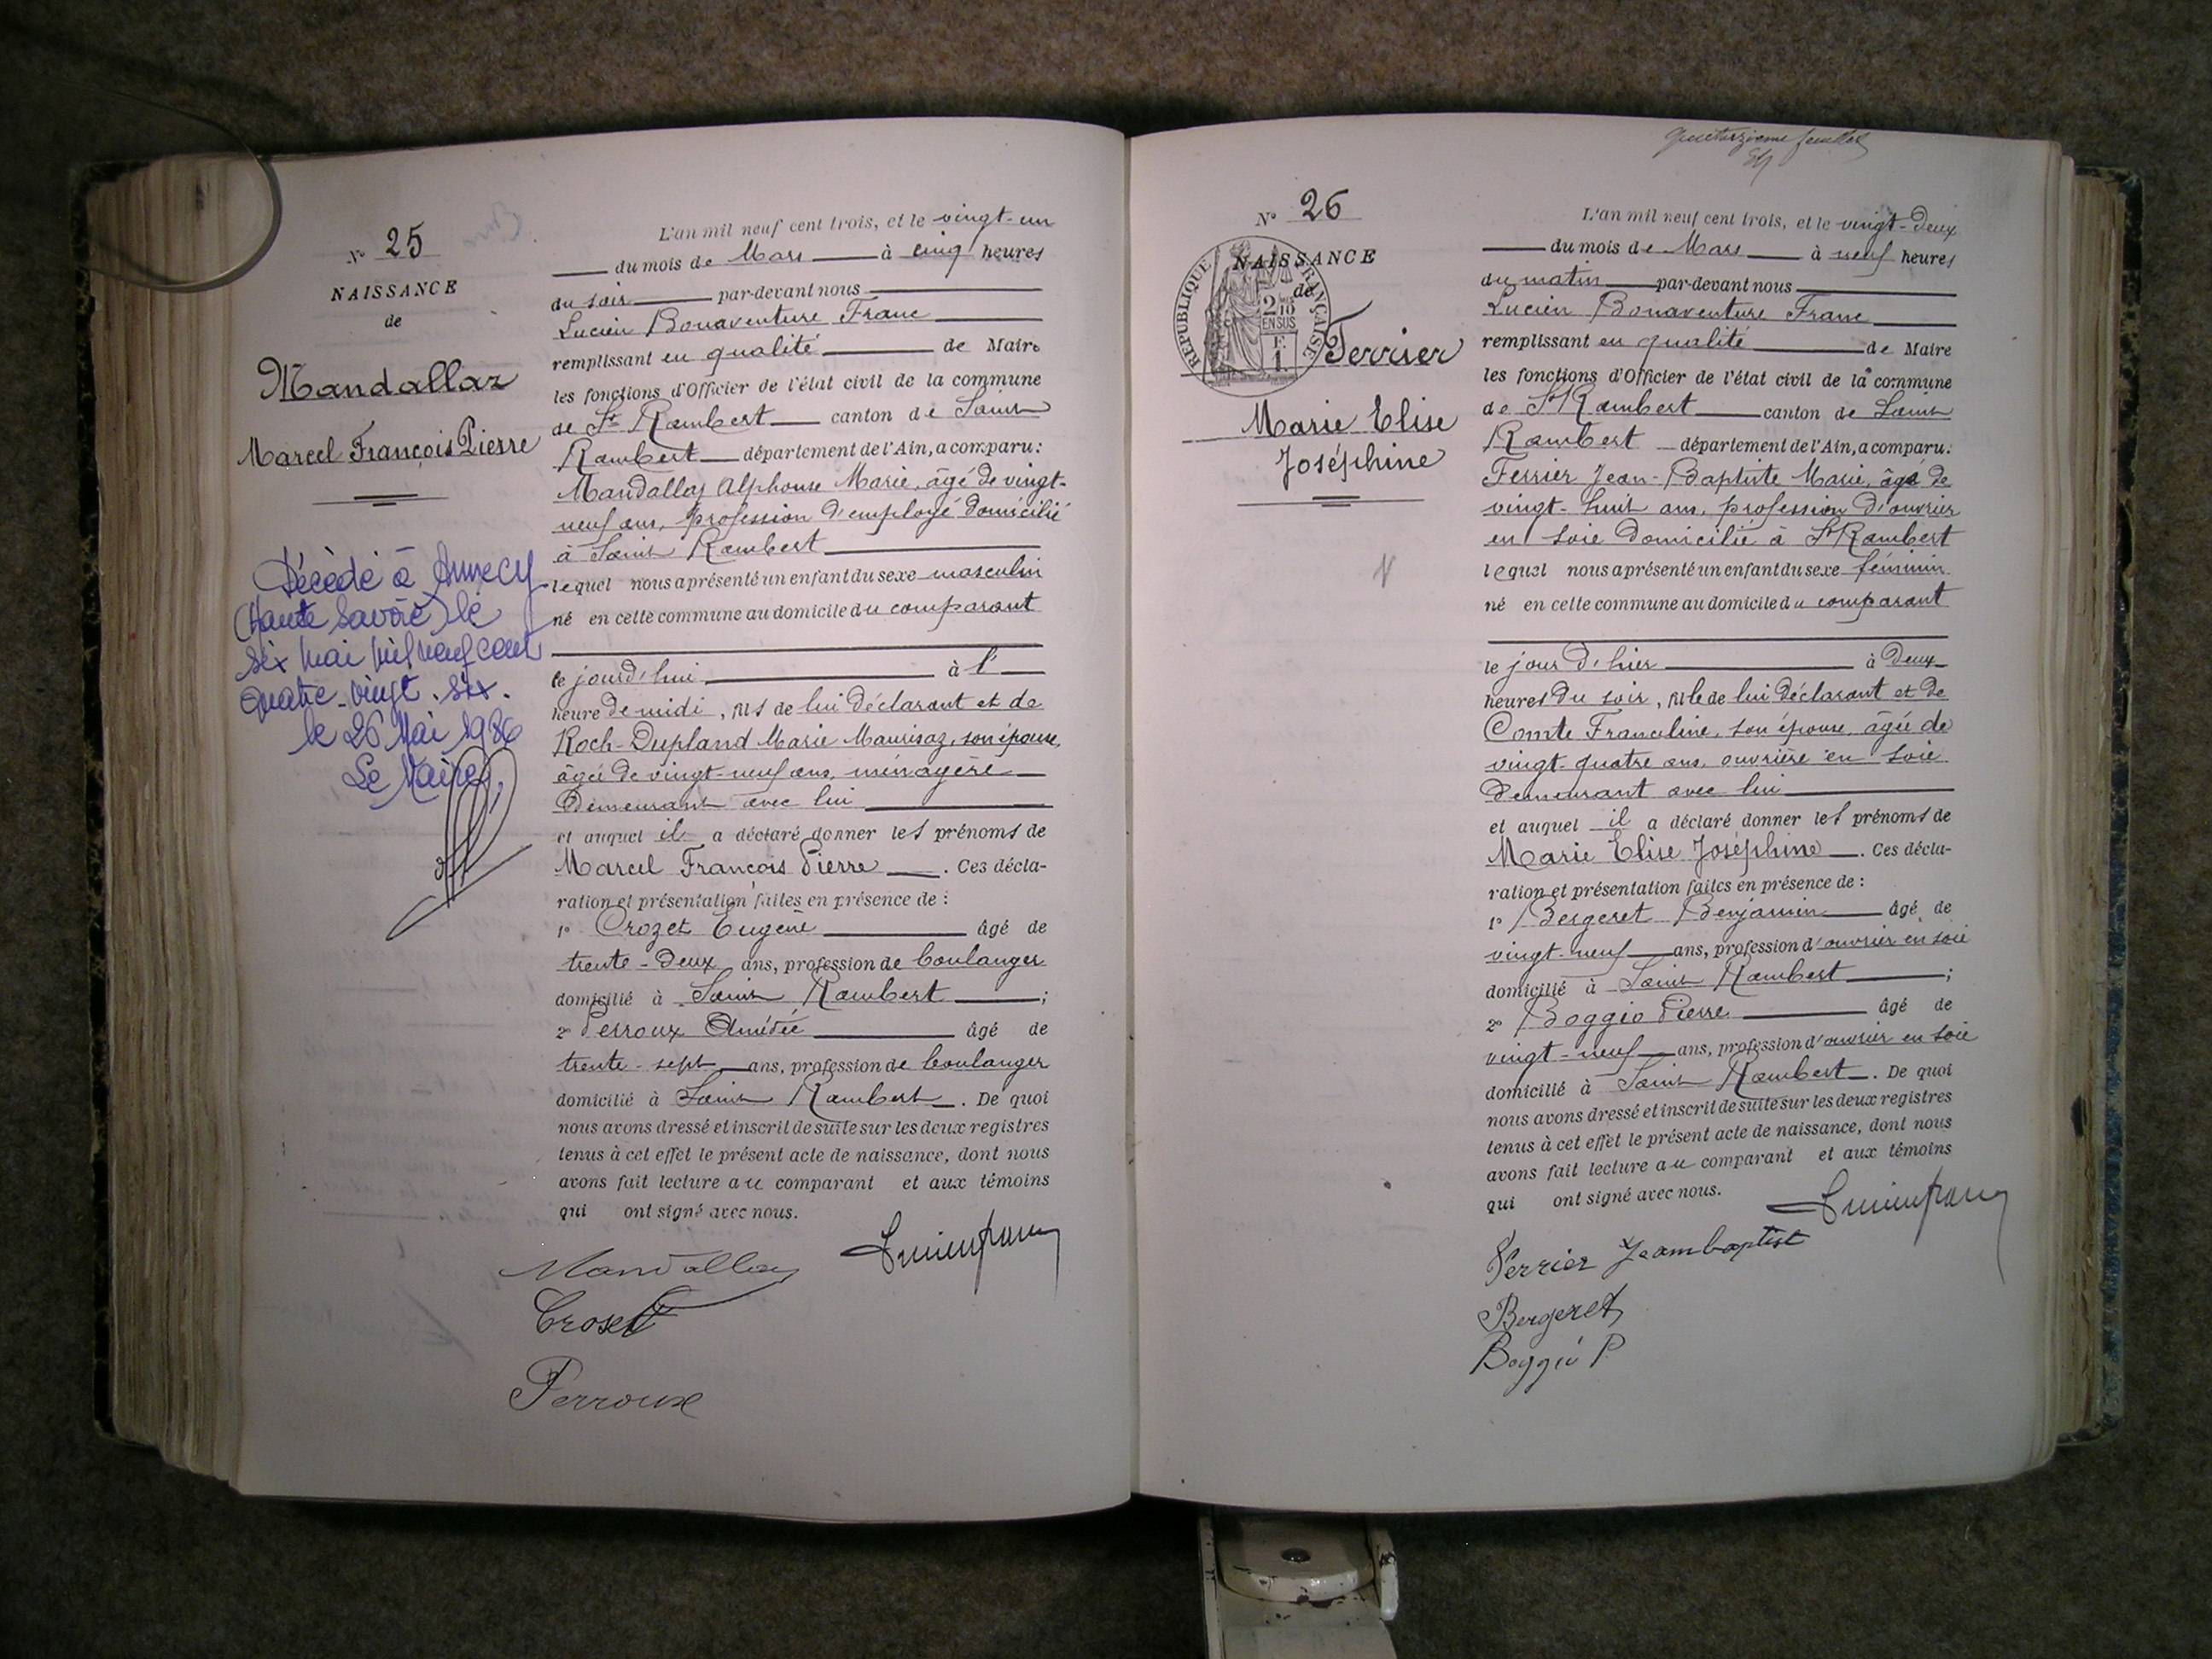 N° 25
NAISSANCE
de
Mandallaz
Marcel François Pierre
Décédé à Annecy
(Haute Savoie) le
six mai mil neuf cent
quatre-vingt-six.
le 26 Mai 1986
Le Maire,
L'an mil neuf cent trois, et le vingt-un
du mois de Mars à cinq heures
du soir par-devant nous
Lucien Bonaventure Franc
remplissant en qualité de Maire
les fonctions d'Officier de l'état civil de la commune
de St Rambert canton de Saint
Rambert département de l'Ain, a comparu:
Mandallaz Alphonse Marie, âgé de vingt-
neuf ans, profession d'employé domicilié
à Saint Rambert
lequel nous a présenté un enfant du sexe masculin
né en cette commune au domicile du comparant
le jourd'hui à l'
heure de midi, fils de lui déclarant et de
Roch-Dupland Marie, son épouse,
âgée de vingt-neuf ans, ménagère
demeurant avec lui
et auquel il a déclaré donner les prénoms de
Marcel François Pierre. Ces décla-
ration et présentation faites en présence de :
1° Crozet Eugène âgé de
trente-deux ans, profession de boulanger
domicilié à Saint Rambert ;
2° Perroux Amédée âgé de
trente-sept ans, profession de boulanger
domicilié à Saint Rambert. De quoi
nous avons dressé et inscrit de suite sur les deux registres
tenus à cet effet le présent acte de naissance, dont nous
avons fait lecture au comparant et aux témoins
qui ont signé avec nous.
Mandallaz Lucien franc
Croset
Perroux
quatorzième feuillet
N° 26
NAISSANCE
de
REPUBLIQUE FRANÇAISE
2/10
EN SUS
F.
1.
Ferrier
Marie Elise
Joséphine
L'an mil neuf cent trois, et le vingt-deux
du mois de Mars à neuf heures
du matin par-devant nous
Lucien Bonaventure Franc
remplissant en qualité de Maire
les fonctions d'Officier de l'état civil de la commune
de St Rambert canton de Saint
Rambert département de l'Ain, a comparu:
Ferrier Jean-Baptiste Marie, âgé de
vingt-huit ans, profession d'ouvrier
en soie domicilié à St Rambert
lequel nous a présenté un enfant du sexe féminin
né en cette commune au domicile du comparant
le jour d'hier à deux
heures du soir, fille de lui déclarant et de
Comte Franceline, son épouse, âgée de
vingt-quatre ans, ouvrière en soie
demeurant avec lui
et auquel il a déclaré donner les prénoms de
Marie Elise Joséphine. Ces décla-
ration et présentation faites en présence de :
1° Bergeret Benjamin âgé de
vingt-neuf ans, profession d'ouvrier en soie
domicilié à Saint Rambert ;
2° Boggio Pierre âgé de
vingt-neuf ans, profession d'ouvrier en soie
domicilié à Saint Rambert. De quoi
nous avons dressé et inscrit de suite sur les deux registres
tenus à cet effet le présent acte de naissance, dont nous
avons fait lecture au comparant et aux témoins
qui ont signé avec nous.
Lucien franc
Ferrier Jeambaptist
Bergeret
Boggio P